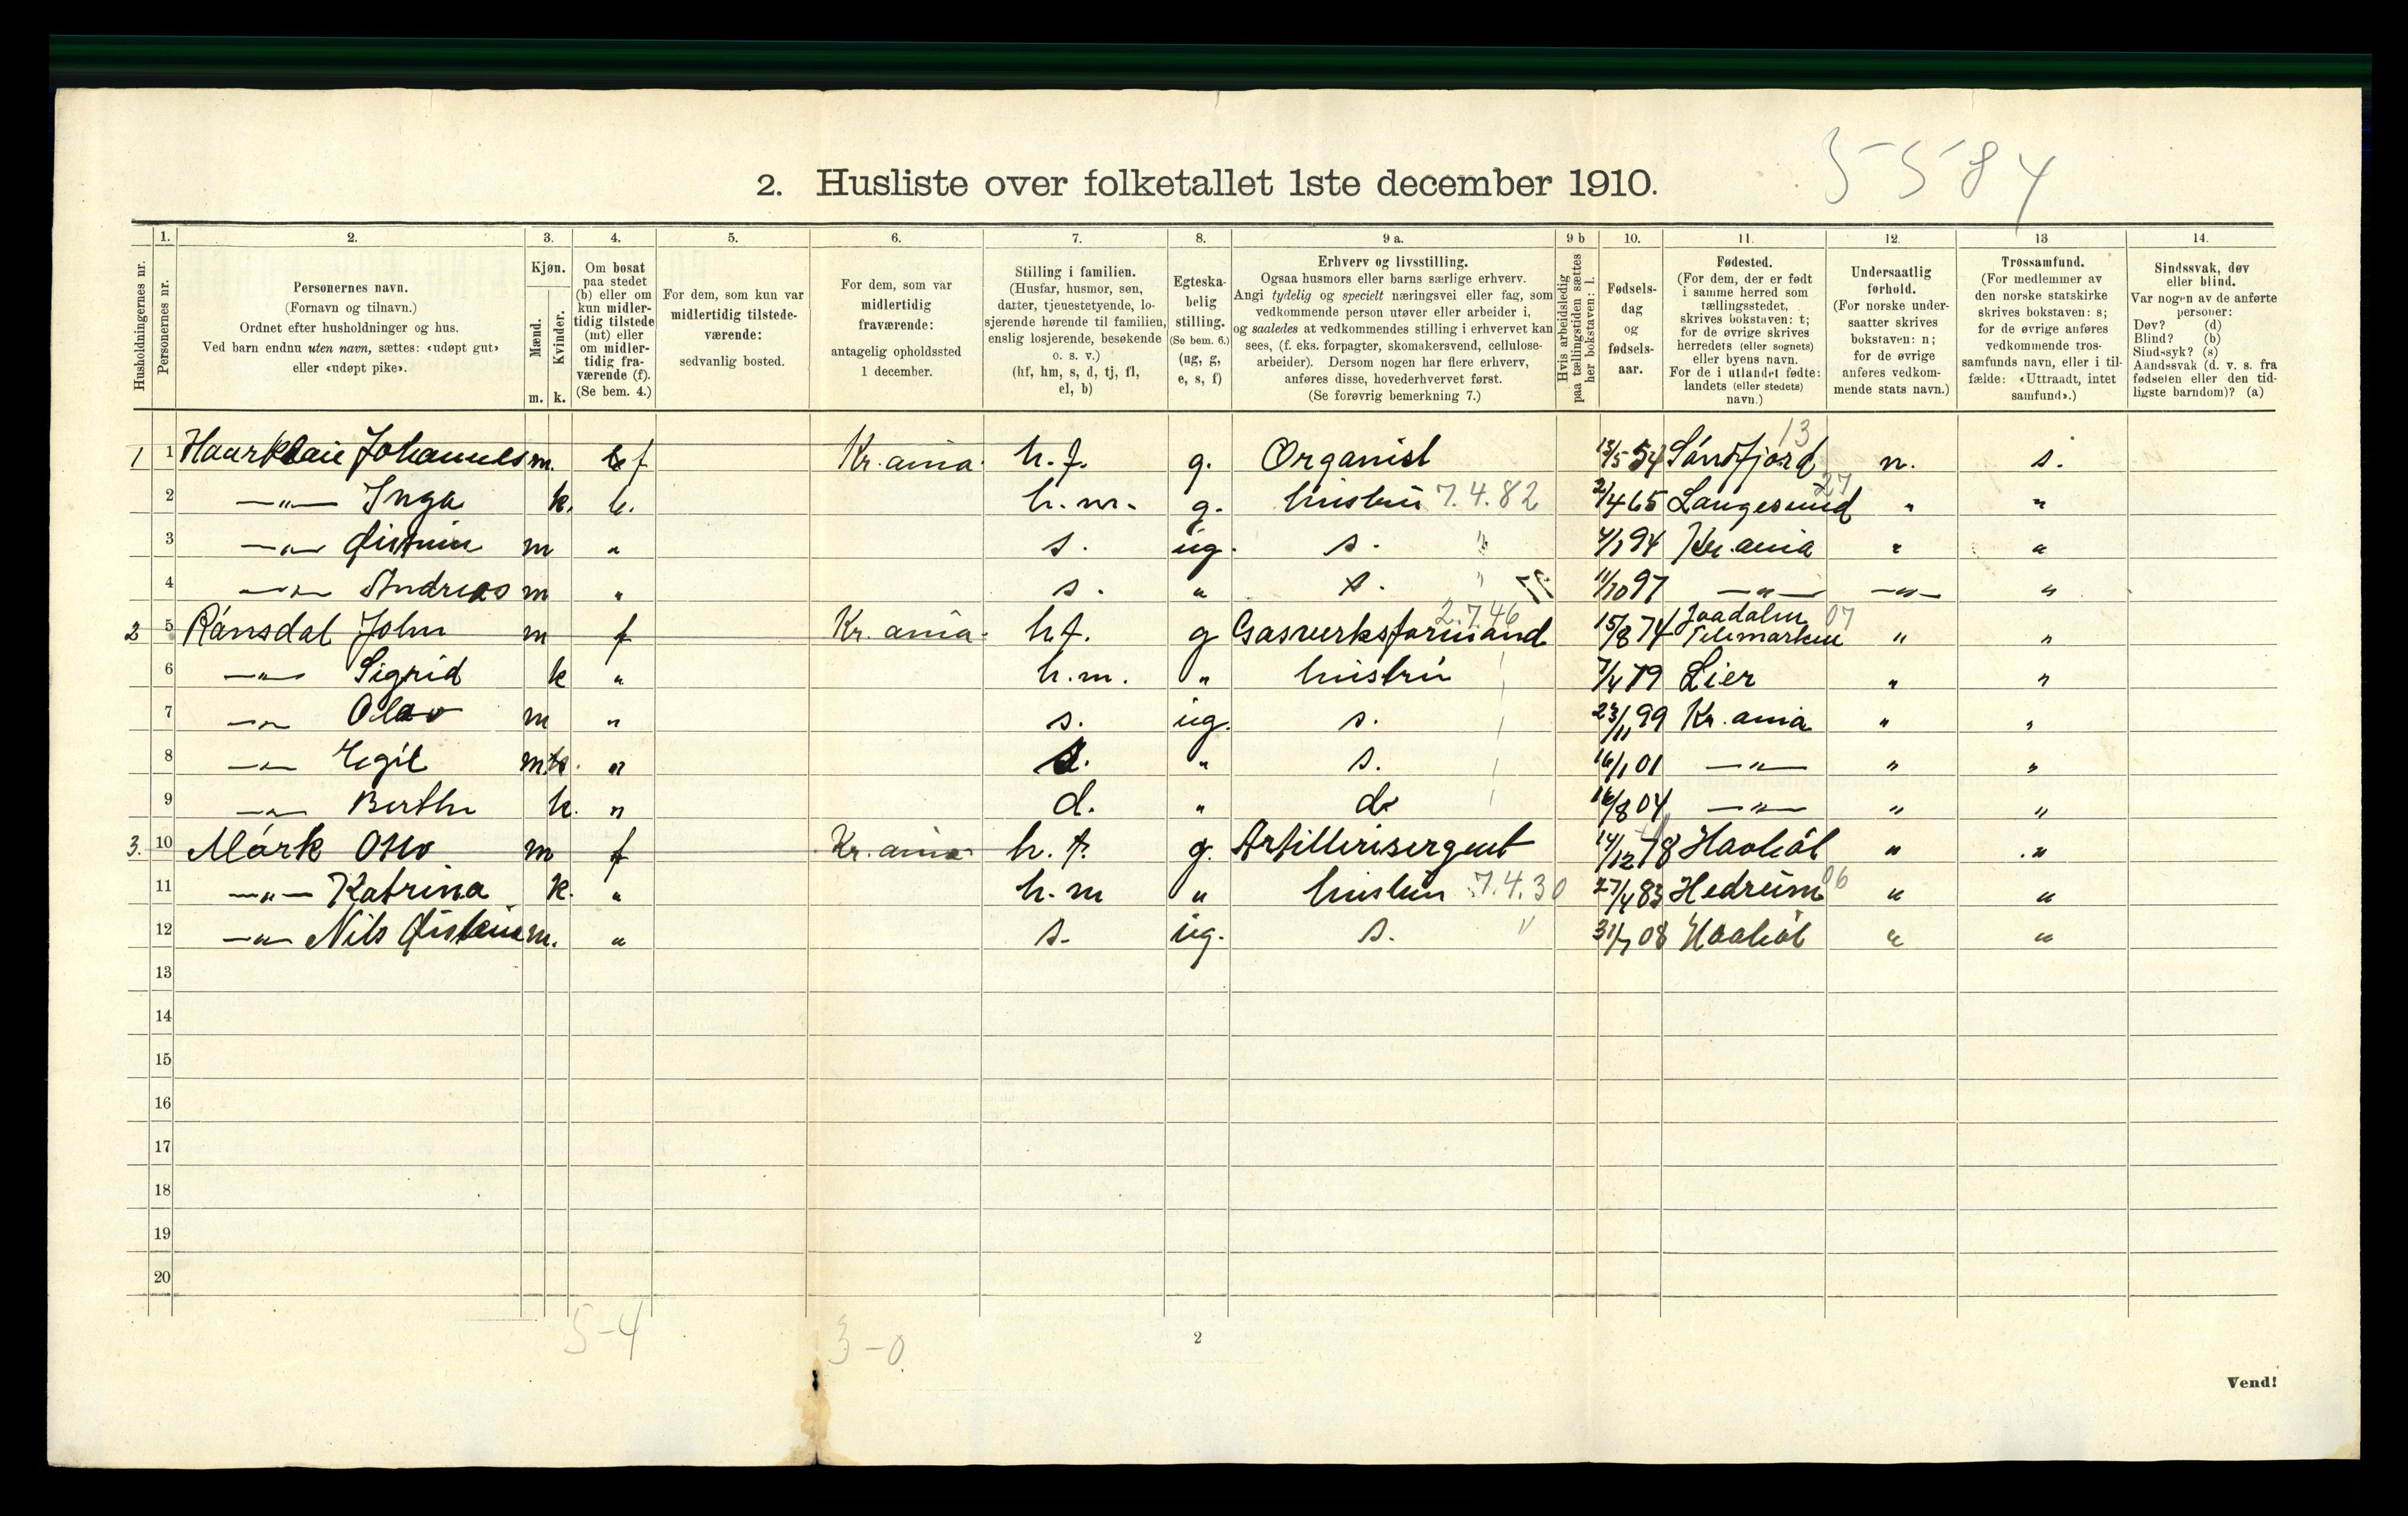 5584
2. Husliste over folketallet 1ste december 1910.
Husholdningernes nr.
1.
Personernes nr.
2.
Personernes navn.
(Fornavn og tilnavn.)
Ordnet efter husholdninger og hus.
Ved barn endnu uten navn, sættes: «udøpt gut»
eller «udøpt pike».
3.
Kjøn.
Mænd.
Kvinder.
m. k.
4.
Om bosat
paa stedet
(b) eller om
kun midler-
tidig tilstede
(mt) eller
om midler-
tidig fra-
værende (f).
(Se bem. 4.)
5.
For dem, som kun var
midlertidig tilstede-
værende:
sedvanlig bosted.
6.
For dem, som var
midlertidig
fraværende:
antagelig opholdssted
1 december.
7.
Stilling i familien.
(Husfar, husmor, søn,
datter, tjenestetyende, lo-
sjerende hørende til familien,
enslig losjerende, besøkende
o. s. v.)
(hf, hm, s, d, tj, fl,
el, b)
8.
Egteska-
belig
stilling.
(Se bem. 6.)
(ug, g,
e, s, f)
9 a.
Erhverv og livsstilling.
Ogsaa husmors eller barns særlige erhverv.
Angi tydelig og specielt næringsvei eller fag, som
vedkommende person utøver eller arbeider i,
og saaledes at vedkommendes stilling i erhvervet kan
sees, (f. eks. forpagter, skomakersvend, cellulose-
arbeider). Dersom nogen har flere erhverv,
anføres disse, hovederhvervet først.
(Se forøvrig bemerkning 7.)
9 b
Hvis arbeidsledig
paa tællingstiden sættes
her bokstaven: l.
10.
Fødsels-
dag
og
fødsels-
aar.
11.
Fødested.
(For dem, der er født
i samme herred som
tællingsstedet,
skrives bokstaven: t;
for de øvrige skrives
herredets (eller sognets)
eller byens navn.
For de i utlandet fødte:
landets (eller stedets)
navn.)
12.
Undersaatlig
forhold.
(For norske under-
saatter skrives
bokstaven: n;
for de øvrige
anføres vedkom-
mende stats navn.)
13
Trossamfund.
(For medlemmer av
den norske statskirke
skrives bokstaven: s;
for de øvrige anføres
vedkommende tros-
samfunds navn, eller i til-
fælde: «Uttraadt, intet
samfund».)
14.
Sindssvak, døv
eller blind.
Var nogen av de anførte
personer:
Døv? (d)
Blind? (b)
Sindssyk? (s)
Aandssvak (d. v. s. fra
fødselen eller den tid-
ligste barndom)? (a)
1 1 Haarklaie Johannes m. b f Kr.ania. h.f. g. Organist 13/5 54 Søndfjord 13 n. s.
2 —"— Inga k. b. h.m. g. hustru 7.4.82 2/4 65 Langesund 27 " "
3 —"— Øistein m " s. ug. s. " 4/1 94 Kr.ania " "
4 —"— Andreas m " s. " s. " 11/10 97 —"— —"— "
2 5 Rånsdal John m f Kr.ania. h.f. g Gasverksformand 2.7.46 15/8 74 Telemarken 07 " "
6 —"— Sigrid k " h.m. " hustru 7/4 79 Lier " "
7 —"— Olav m " s. ug. s. 23/11 99 Kr.ania " "
8 —"— Egil m k. " s. " s. 16/1 01 —"— " "
9 —"— Berthe k. " d. " d. 16/8 04 —"— " "
3. 10 Mørk Otto m f Kr.ania h.f. g. Artillerisergent 14/12 78 Haabøl " "
11 —"— Katrina k. " h.m " hustru 7.4.30 27/4 83 Hedrum 06 " "
12 —"— Nils Øistein m. " s. ug. s. " 31/7 08 Haabøl " "
13
14
15
16
17
18
19
20
5-4
3-0
2
Vend!